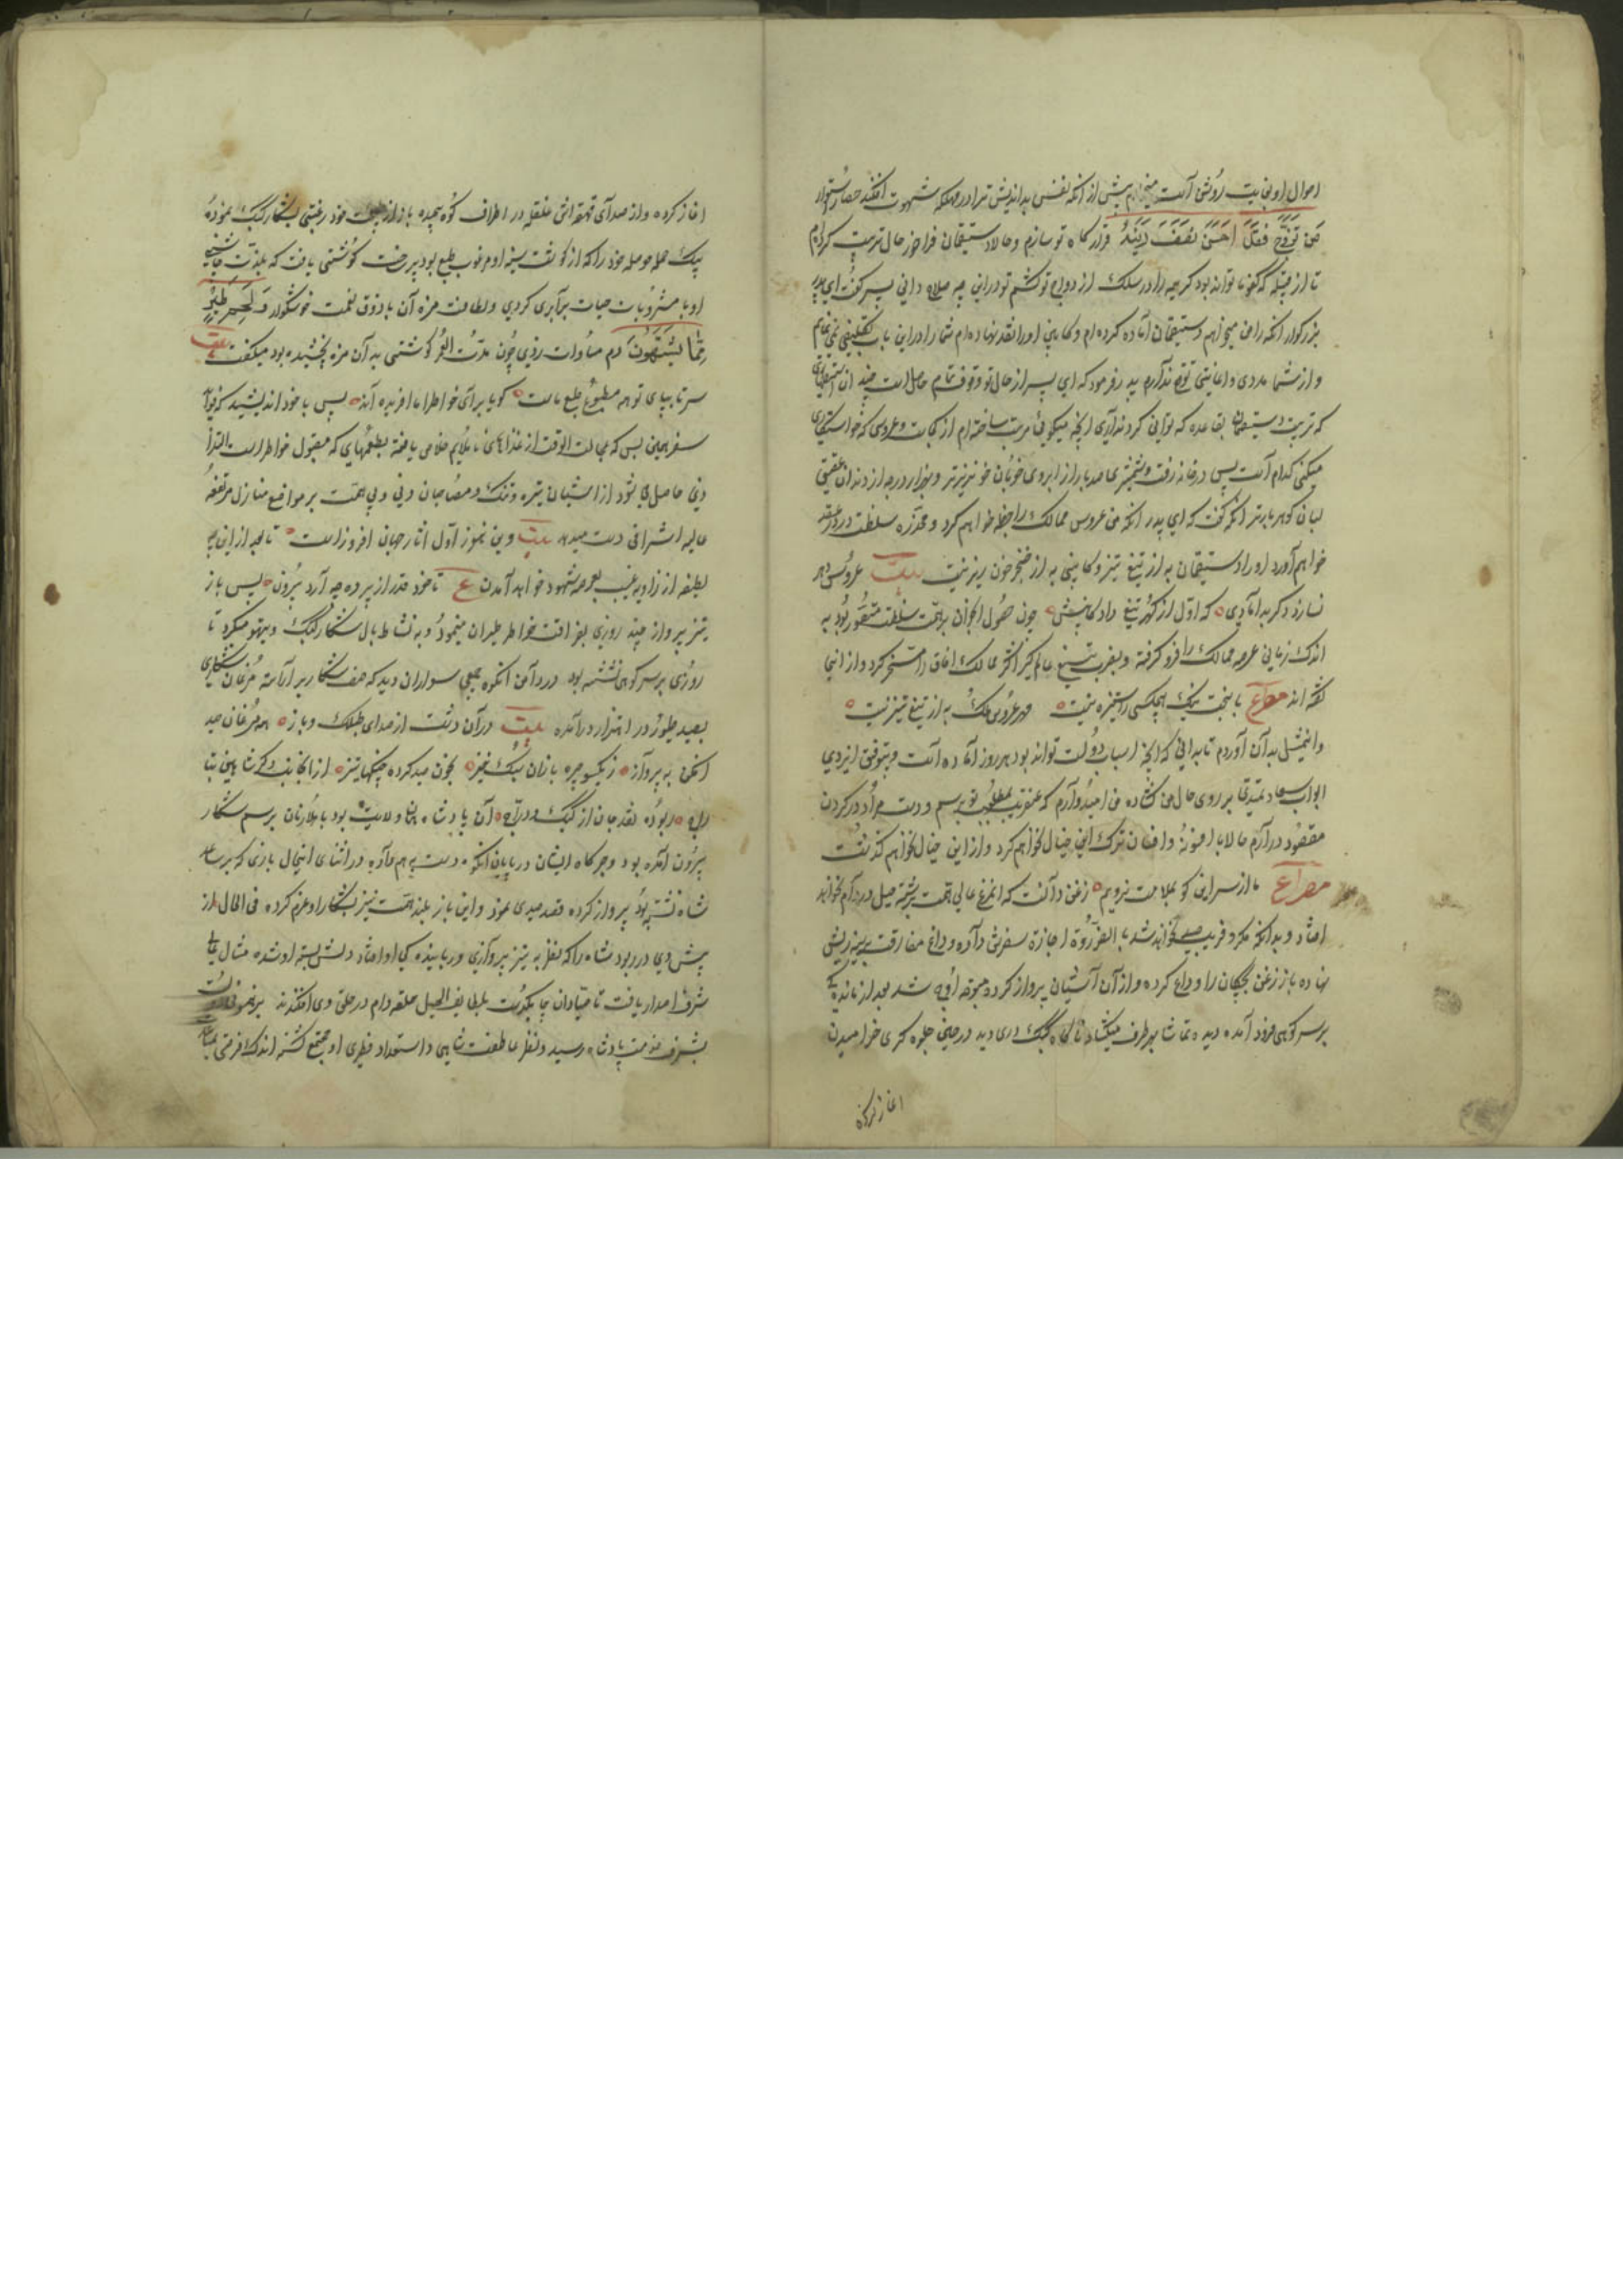 احوال او بغایت روشن است میخواهم پیش از آنکه نفس بداندیش ترا در مهلکه شهوت افکند حصار استوار
من تزوج فقد احصن نصف دینه قرارگاه تو سازم و حالا دستپیمان فراخور حال ترتیب کرده‌ام
تا از قبیله که کفو ما تواند بود کریمه را در سلک ازدواج تو کشم تو در این چه صلاح دانی پسر گفت ای پدر
بزرگوار آنکه را من میخواهم دستپیمان آماده کرده‌ام و کابین او را نقد نهاده‌ام شما را در این باب تکلیفی نمی‌نمایم
و از شما مددی و اعانتی توقع ندارم پدر فرمود که ای پسر از حال تو وقوف تمام حاصل است چندان استظهاری
که ترتیب دستپیمان بقاعده که توانی کرد نداری اینچه میگویی مرتب ساخته‌ام از کجاست و عروسی که خواستگاری
میکنی کدام است پسر در خانه رفت و شمشیری صد بار از ابروی خوبان خونریزتر و هزار درجه از دندان عقیق
لبان گوهربارتر آنگه گفت که ای پدر آنکه من عروس ممالک را خطبه خواهم کرد و مخدره سلطنت در عقد
خواهم آورد او را دستپیمان به از تیغ تیز و کابینی به از خنجر خون ریز نیست بیت عروس دهر
نسازد دگر بدامادی که اول از گهر تیغ داد کابینش چون حصول آنجوان برهمت سلطنت مقصور بود به
اندک زمانی عرصه ممالک را فرو گرفته و بضرب تیغ عالمگیر اکثر ممالک آفاق را مسخر کرد و از اینجا
گفته‌اند مصراع با بخت نیک هیچکس را ستیزه نیست مهر عروس ملک به از تیغ تیز نیست
و این مثل به آن آوردم تا بدانی که آنچه اسباب دولت تواند بود هر روز آماده است و بتوفیق ایزدی
ابواب سعادتمندی بر روی حال من گشاده من امید وارم که عنقریب بمطلوب تو برسم و دست مراد در گردن
مقصود درآرم حالا با افسون و افسانه ترک این خیال نخواهم کرد و از این خیال نخواهم گذشت
مصراع ما از سر این کو بملامت نرویم زغن دانست که آن مرغ عالی همت برشته حیل در دام نخواهد
افتاد و بدانه مکر و فریب صید نخواهد شد بالضروره اجازه سفرش داده و داغ مفارقت بر سینه ریش
نهاده باز زغن بچگان را وداع کرده و از آن آشیان پرواز کرده متوجه اوج شد بعد از ماندگی
بر سر کوهی فرود آمده دیده تماشا بهر طرف میگشاد ناگاه کبک دری دید در عین جلوه گری خرامیدن
آغاز کرده
آغاز کرده و از صدای قهقهه‌اش غلغله در اطراف کوه پیچیده باز از طبیعت خود رغبتی بشکار کبک نموده
بیک حمله حوصله خود را که از گوشت سینه او مرغوب طبع بود پر ساخت گوشتی یافت که بلذت چاشنی
او با مشروبات حیات برابری کردی و لطافت مزه آن با ذوق نعمت خوشگوار و لحم طیر
مما یشتهون دم مساوات زدی چون مدت العمر گوشتی به آن مزه نچشیده بود میگفت بیت
سر تا بپای تو همه مطبوع طبع ماست گویا برای خواطر ما آفریده‌اند پس با خود اندیشید که فواید
سفر همین بس که بی علت الوقت از غذاهای ناملایم خلاص یافته بطعمهایی که مقبول خواطر است التذاذ
دنی حاصل می‌شود از آشیان تیره و تنگ و مصاحبان دنی و بی همت بر مواقع منازل مرتفعه
عالیه اشرافی دست میدهد بیت وین نموز اول آثار جهان افروز است تا بعد از این چه
لطیفه از زاویه غیب بعرصه شهود خواهد آمدن ع تا خود قدر از پرده چه آرد بیرون پس باز
تیز پرواز چند روزی بفراغت خواطر طیران مینمود و به نشاط بال شکار کبک و تیهو میکرد تا
روزی بر سر کوهی نشسته بود در دامن آن کوه جمعی سواران دید که صف شکار برآراسته مرغان شکاری
بصید طیور در اهتزار درآمده بیت در آن دشت از صدای طبلک و باز همه مرغان صید
افکن به پرواز ز یکسو جره بازان سبک خیز بخون صید کرده چنگها تیز از آنجانب دگر شاهین بیتا
راه ربوده نقد جان از کبک و دراج آن پادشاه آن ولایت بود با ملازمان برسم شکار
بیرون آمده بود و چرگاه ایشان در پایان آن کوه دست بهم داده در اثنای اینحال بازی که بر ساعد
شاه نشسته بود پرواز کرده قصد صیدی نمود و این باز بلند همت نیز بشکار او عزم کرده فی الحال از
پیش وی در ربود شاه را که نظر به تیز پروازی و ربایندگی او افتاد دلش بسته او شده مثال عالی
شرف اصدار یافت تا صیادان چابک دست بلطایف الحیل حلقه دام در حلق وی افکندند
بشرف خدمت پادشاه رسید و نظر عاطفت شاهی و استعداد فطری او مجتمع گشته اندک فرصتی